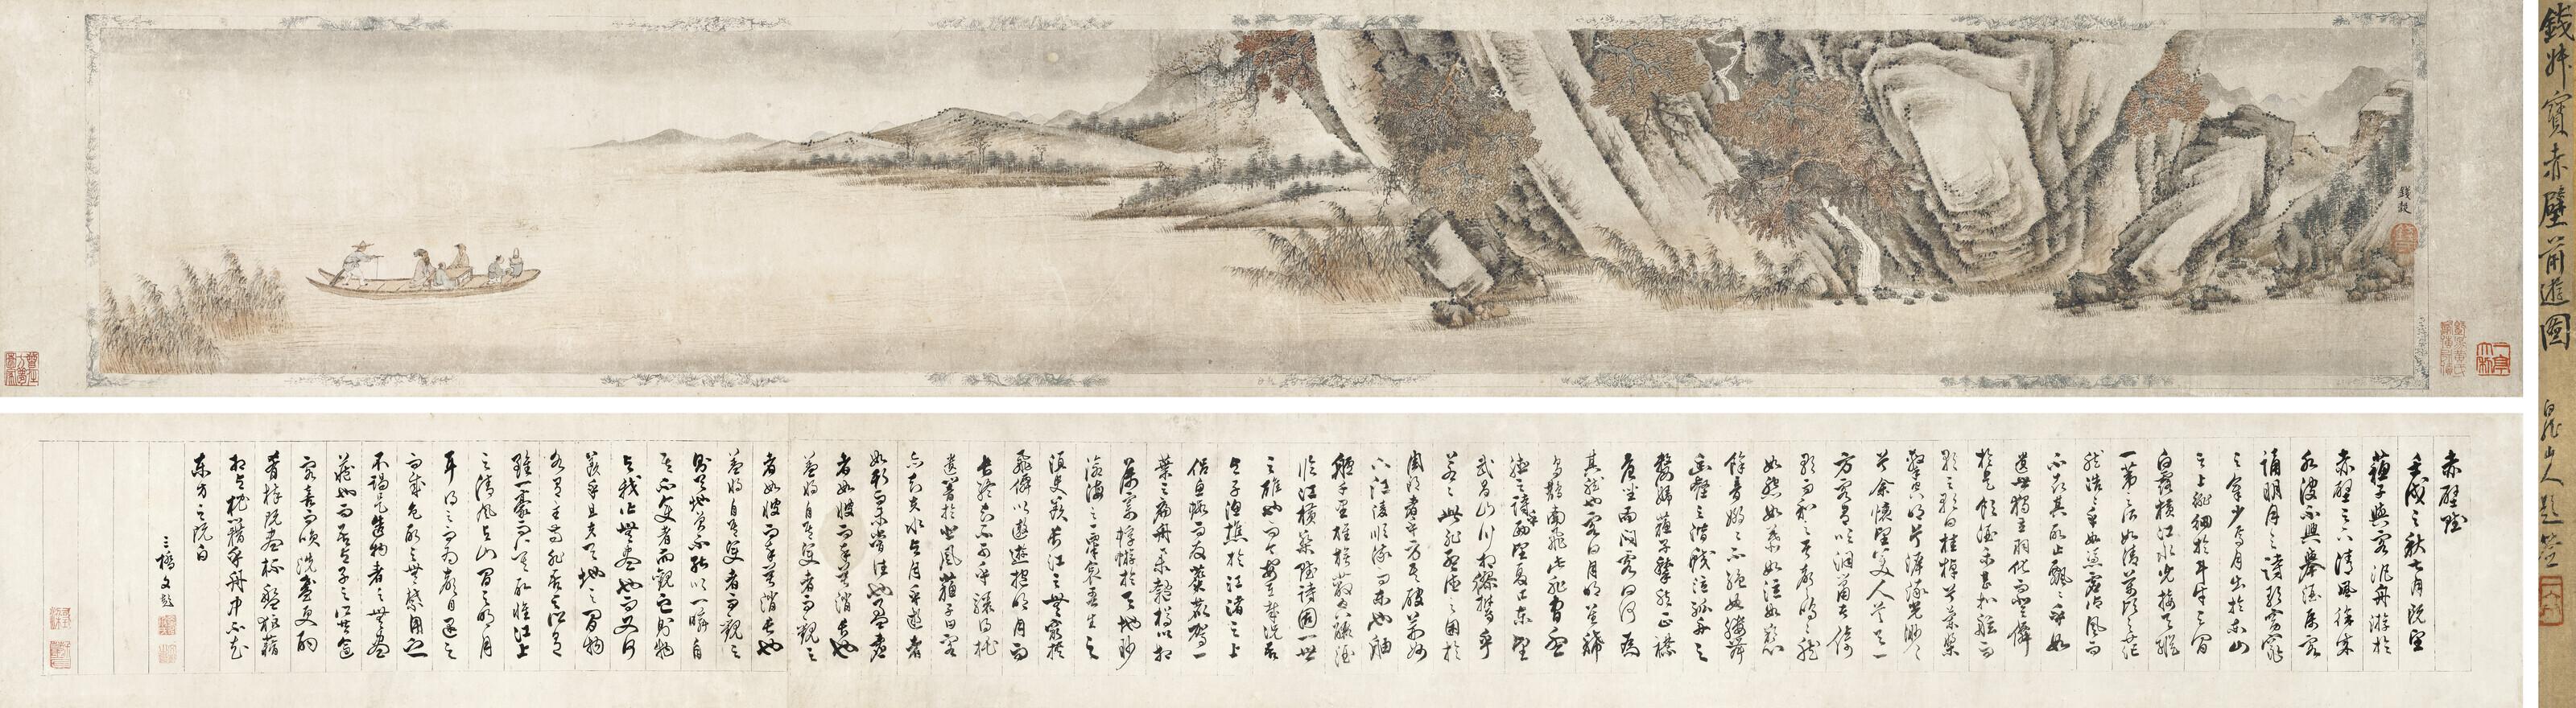 錢叔寶赤壁前遊圖
白龍山人題簽
錢穀
赤壁賦
壬戌之秋七月既望
蘇子與客泛舟游於
赤壁之下清風徐來
水波不興舉酒屬客
誦明月之詩歌窈窕
之章少焉月出於東山
之上徘徊於斗牛之間
白露橫江水光接天縱
一葦之所如凌萬頃之茫
然浩浩乎如馮虛御風而
不知其所止飄飄乎如
遺世獨立羽化而登僊
於是飲酒樂甚扣舷而
歌之歌曰桂棹兮蘭槳
擊空明兮泝流光渺渺
兮余懷望美人兮天一
方客有吹洞簫者倚
歌而和之其聲嗚嗚然
如怨如慕如泣如訴
餘音嫋嫋不絕如縷舞
幽壑之潛蛟泣孤舟之
嫠婦蘇子愀然正襟
危坐而問客曰何為
其然也客曰月明星稀
烏鵲南飛此非曹孟
德之詩乎西望夏口東望
武昌山川相繆鬱乎
蒼蒼此非孟德之困於
周郎者乎方其破荊州
下江陵順流而東也舳
艫千里旌旗蔽空釃酒
臨江橫槊賦詩固一世
之雄也而今安在哉況吾
與子漁樵於江渚之上
侶魚蝦而友麋鹿駕一
葉之扁舟舉匏樽以相
屬寄蜉蝣於天地渺
滄海之一粟哀吾生之
須臾羨長江之無窮挾
飛僊以遨遊抱明月而
長終知不可乎驟得托
遺響於悲風蘇子曰客
亦知夫水與月乎逝者
如斯而未嘗往也盈虛
者如彼而卒莫消長也
蓋將自其變者而觀之
者如彼而卒莫消長也
蓋將自其變者而觀之
則天地曾不能以一瞬自
其不變者而觀之則物
與我皆無盡也而又何
羨乎且夫天地之間物
各有主苟非吾之所有
雖一毫而莫取惟江上
之清風與山間之明月
耳得之而為聲目遇之
而成色取之無禁用之
不竭是造物者之無盡
藏也而吾與子之所共食
客喜而笑洗盞更酌
肴核既盡杯盤狼藉
相與枕藉乎舟中不知
東方之既白
三橋文彭